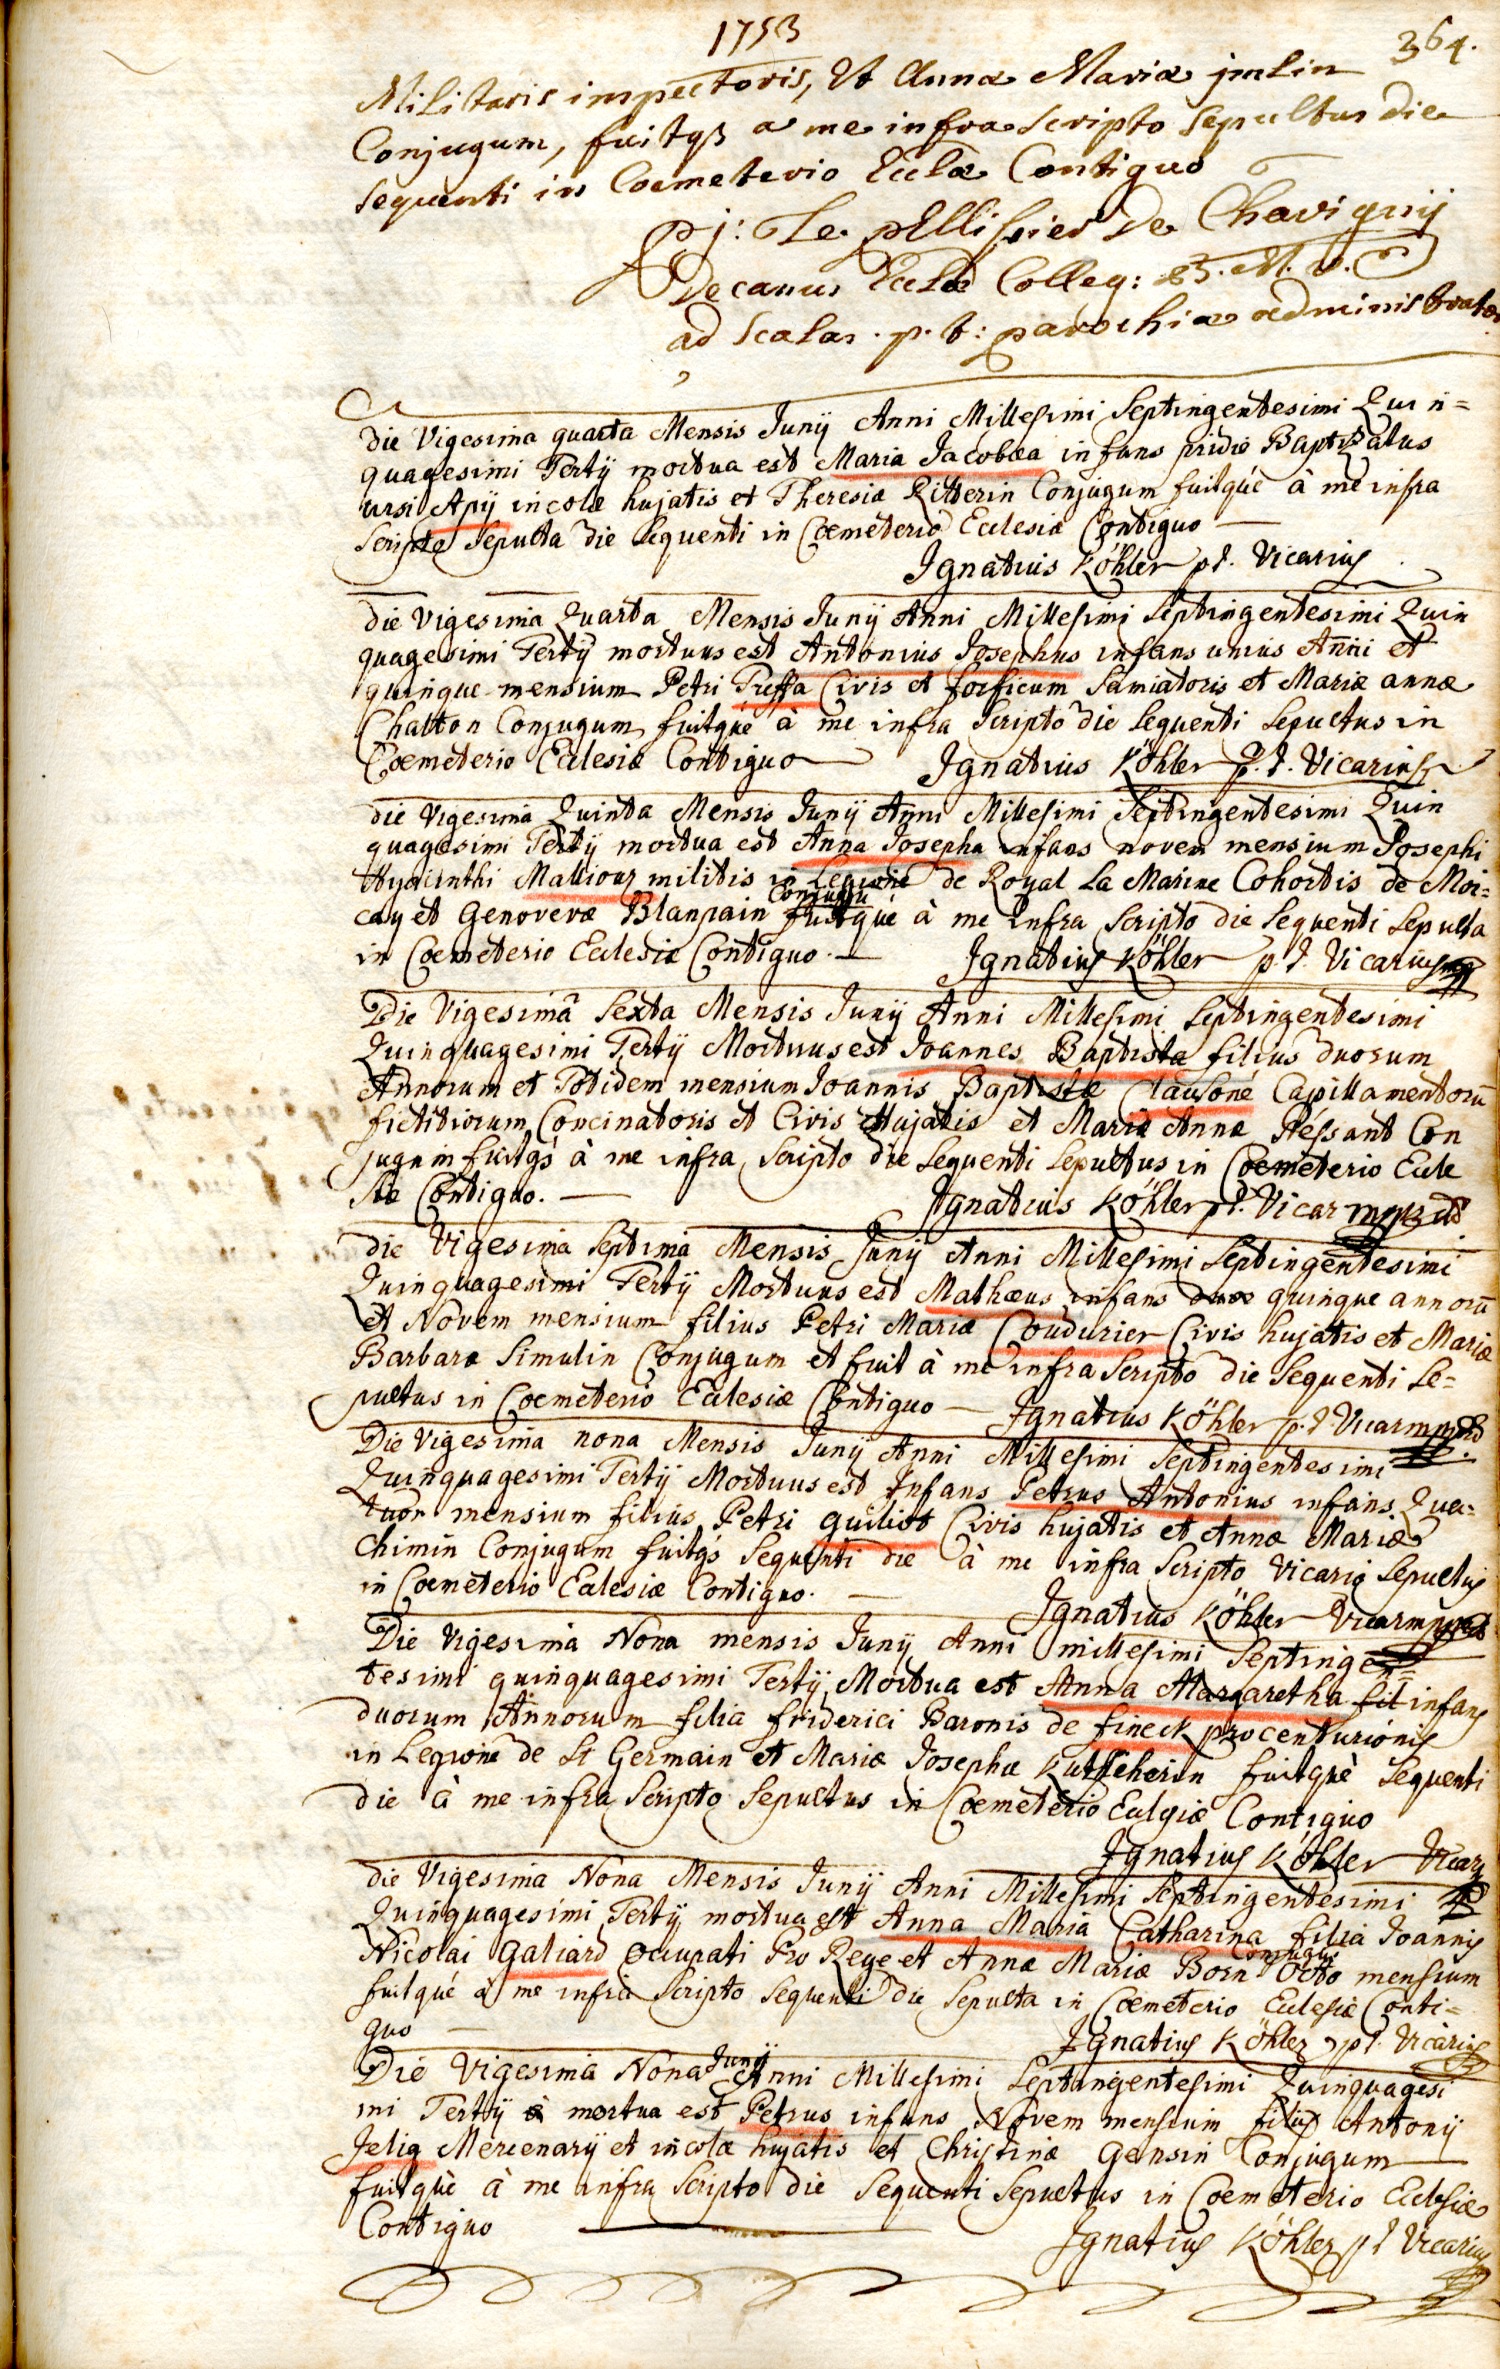 1753
364.
Militaris inspectoris, et Annæ Mariæ jmlin
Conjugum, fuitqß a me infra scripto Sepultus die
sequenti in Coemeterio Eccłæ Contiguo
pj: Le pellissier de Chavignij
Decanus Eccłæ Colleg: B. M. V.
ad Scalas. p. t: parochiæ administrator
die Vigesima quarta Mensis Junij Anni Millesimi Septingentesimi Quin=
quagesimi Tertij mortua est Maria Jacobæa infans pridie Baptizatus
ursi Apij incolæ hujatis et Theresiæ Ritterin Conjugum fuitqué à me infra
Scripto Sepulta die sequenti in Coemeterio Ecclesiæ Contiguo —
Ignatius Köhler pt. Vicarius
die Vigesima Quarta Mensis Junij Anni Millesimi Septingentesimi Quin
quagesimi Tertij mortuus est Antonius Josephus infans unius Anni et
quinque mensium Petri Treffa Civis et forficum Samiatoris et Mariæ annæ
Chatton Conjugum fuitqué à me infra Scripto die sequenti sepultus in
Coemeterio Ecclesiæ Contiguo — Ignatius Köhler p. t. Vicarius
die Vigesima Quinta Mensis Junij Anni Millesimi Septingentesimi Quin
quagesimi Tertij mortua est Anna Josepha infans novem mensium Josephi
Hyacinthi Malliour militis in Legione de Royal La Marine Cohortis de Moi=
cay et Genoveræ Blanpain Conjugum fuitqué à me infra scripto die sequenti sepulta
in Coemeterio Ecclesiæ Contiguo. — Ignatius Köhler p. t. Vicarius
Die Vigesimâ Sexta Mensis Junij Anni Millesimi Septingentesimi
Quinquagesimi Tertij Mortuus est Joannes Baptista filius duorum
Annorum et Totidem mensium Joannis Baptistæ Clausoné Capillamentorū
fictitiorum Concinatoris et Civis Hujatis et Mariæ Annæ Péssant Con
jugum fuitqś à me infra Scripto die sequenti sepultus in Coemeterio Eccle
siæ Contiguo. — Ignatius Köhler pt. Vicar
die Vigesima Septima Mensis Junij Anni Millesimi Septingentesimi
Quinquagesimi Tertij Mortuus est Mathæus infans quinque annorū
et Novem mensium filius Petri Mariæ Coudurier Civis hujatis et Mariæ
Barbaræ Simulin Conjugum et fuit à me infra Scripto die Sequenti Se=
pultus in Coemeterio Ecclesiæ Contiguo — Ignatius Köhler p. t. Vicar
Die Vigesima nona Mensis Junij Anni Millesimi Septingentesimi
Quinquagesimi Tertij Mortuus est Infans Petrus Antonius infans Qua=
tuor mensium filius Petri guiliot Civis hujatis et Annæ Mariæ
Chimin Conjugum fuitqś Sequenti die à me infra Scripto Vicario Sepultus
in Coemeterio Ecclesiæ Contiguo. — Ignatius Köhler Vicar
Die Vigesima Nona mensis Junij Anni millesimi Septingen=
tesimi quinquagesimi Tertij Mortua est Anna Margaretha fil infans
duorum Annorum filia friderici Baronis de fineck procenturionis
in Legione de St Germain et Mariæ Josephæ Kutscherin fuitquè Sequenti
die à me infra Scripto Sepultus in Coemeterio Eclgiæ Contiguo
Ignatius Köhler Vicarg
die Vigesima Nona Mensis Junij Anni Millesimi Septingentesimi
Quinquagesimi Tertij mortua est Anna Maria Catharina filia Joannis
Nicolai Galiard Occupati Pro Rege et Annæ Mariæ Born Conjugum Octo mensium
fuitqué à me infra Scripto Sequenti die Sepulta in Coemeterio Ecclesiæ Conti=
guo — Ignatius Köhler pt. Vicarius
Die Vigesima Nona Junij Anni Millesimi Septingentesimi Quinquagesi
mi Tertij mortua est Petrus infans Novem mensium filius Antonij
Jelig Mercenarij et incolæ hujatis et Christinæ Gensin Conjugum —
fuitquè à me infra Scripto die Sequenti Sepultus in Coemeterio Ecclesiæ
Contiguo — Ignatius Köhler pt Vicarius